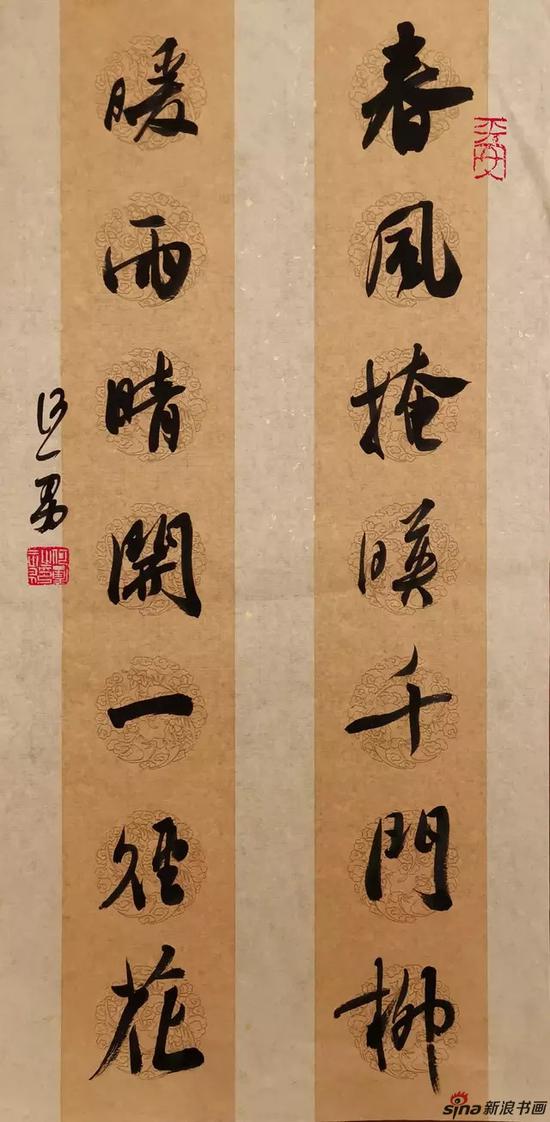 春風掩暎千門柳
暖雨晴開一徑花
平安
sina新浪书画